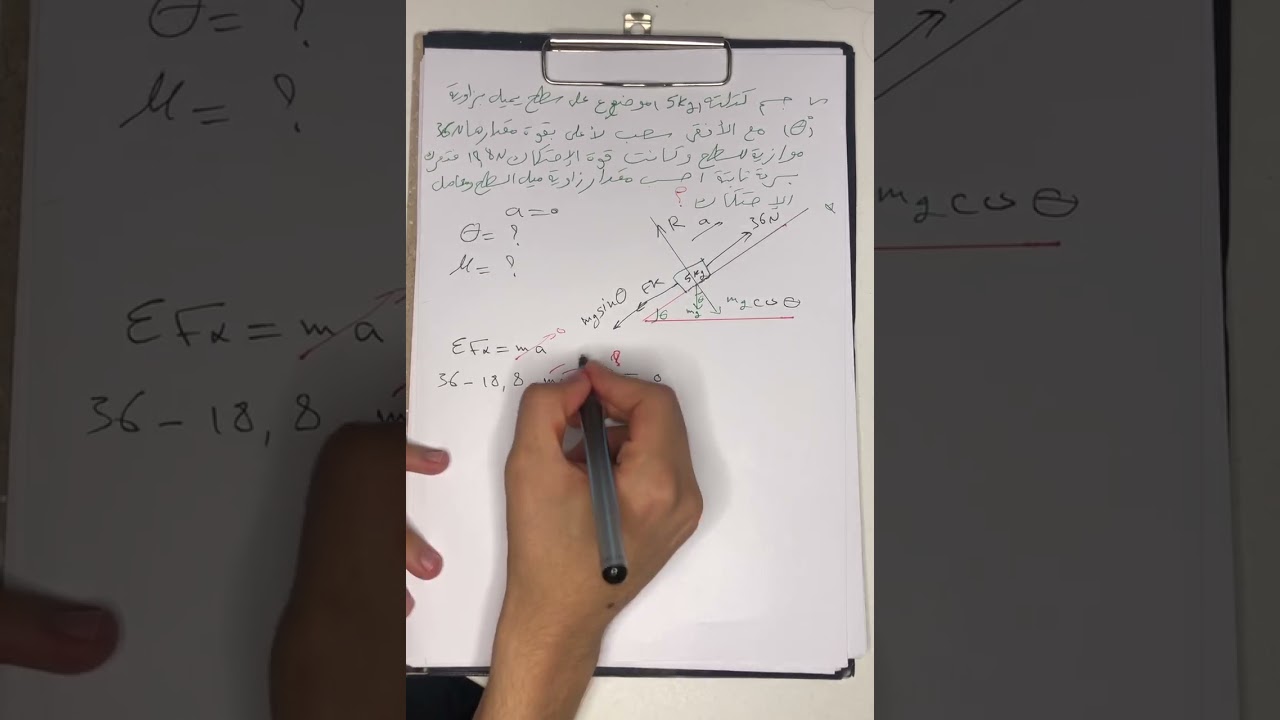 س/ جسم كتلته (5kg) موضوع على سطح يميل بزاوية
(θ°) مع الأفقي سحب لأعلى بقوة مقدارها 36N
موازية للسطح وكانت قوة الإحتكاك 18,8N فتحرك
بسرعة ثابتة احسب مقدار زاوية ميل السطح ومعامل
الإحتكاك ؟
a=0
θ= ?
μ= ?
R
a
36N
5kg
FK
mg sinθ
θ
mg
mg cos θ
θ
ΣFx = ma
0
36 - 18,8
= 0
θ= ?
μ= ?
mg cos θ
ΣFx = ma
36 - 18, 8